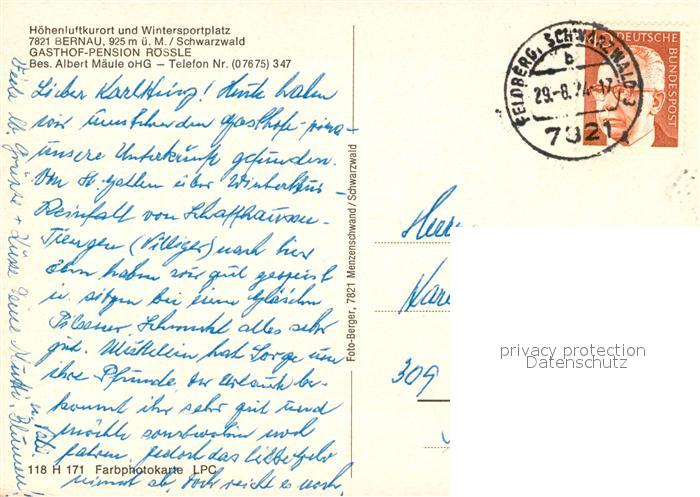 Höhenluftkurort und Wintersportplatz
7821 BERNAU, 925 m ü. M. / Schwarzwald
GASTHOF-PENSION RÖSSLE
Bes. Albert Mäule oHG – Telefon Nr. (07675) 347
Lieber Karlheinz! Heute haben
wir
unsere Unterkunft gefunden.
Von St. Gallen über Winterthur -
Rheinfall von Schaffhausen -
Tiengen (Villiger) nach hier
haben wir gut gespeist
u. sitzen bei einem Gläschen
Pilsener, schmeckt alles sehr
gut. hat Sorge um
ihre Pfunde, der Urlaub be-
kommt ihr sehr gut und
möchte sonstwohin noch
fahren, jedoch das liebe Geld
nimmt ab, doch reicht es noch.
Viele lb. Grüsse + Küsse Deine Mutti,
u. Vati
118 H 171 Farbphotokarte LPC
Foto-Berger, 7821 Menzenschwand / Schwarzwald
FELDBERG, SCHWARZWALD 3
b
29.-8.74.-17
7821
DEUTSCHE BUNDESPOST
Herrn
Kar
309
privacy protection
Datenschutz